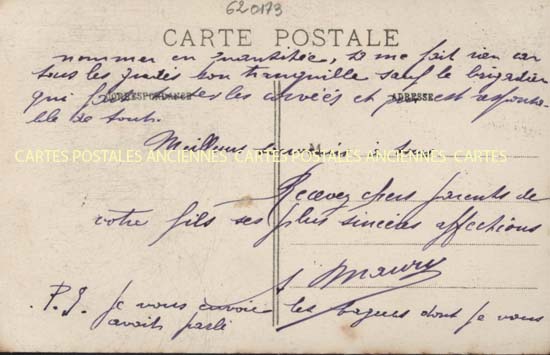 620173
CARTE POSTALE
nommer en quantitée, sa me fait rien car
tous les jeudis bon tranquille sauf le brigadier
CORRESPONDANCE ADRESSE
qui les corvéés et
de tout.
Meilleurs souvenirs à tous
CARTES POSTALES ANCIENNES CARTES POSTALES ANCIENNES CARTES
Recevez chers parents de
votre fils ses plus sincères affections
Maury
P.S. Je vous envoie les bagues dont je vous
avait parlé